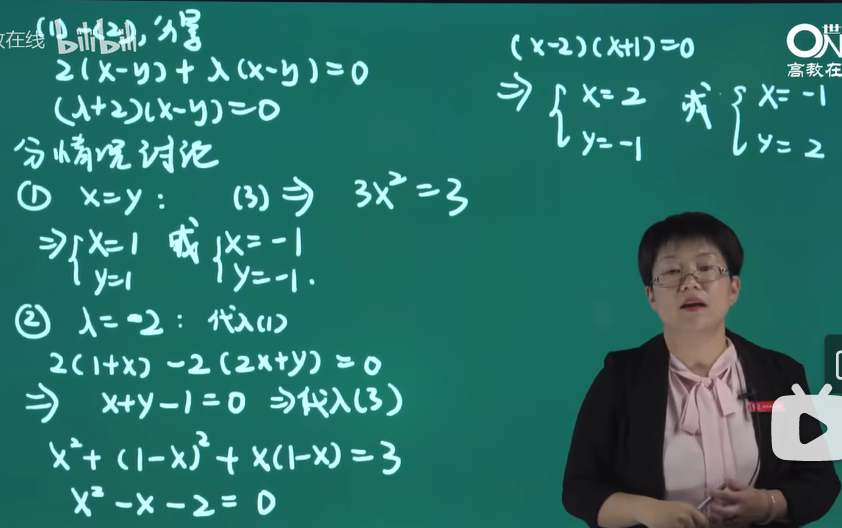 教在线 bilibili
(1)-(2), 分号
2(x-y)+λ(x-y)=0
(λ+2)(x-y)=0
分情况讨论
① x=y: (3)⇒ 3x²=3
⇒ { x=1 或 { x=-1
y=1 y=-1.
② λ=-2: 代入(1)
2(1+x)-2(2x+y)=0
⇒ x+y-1=0 ⇒代入(3)
x²+(1-x)²+x(1-x)=3
x²-x-2=0
(x-2)(x+1)=0
⇒ { x=2 或 { x=-1
y=-1 y=2
世
ON
高教在